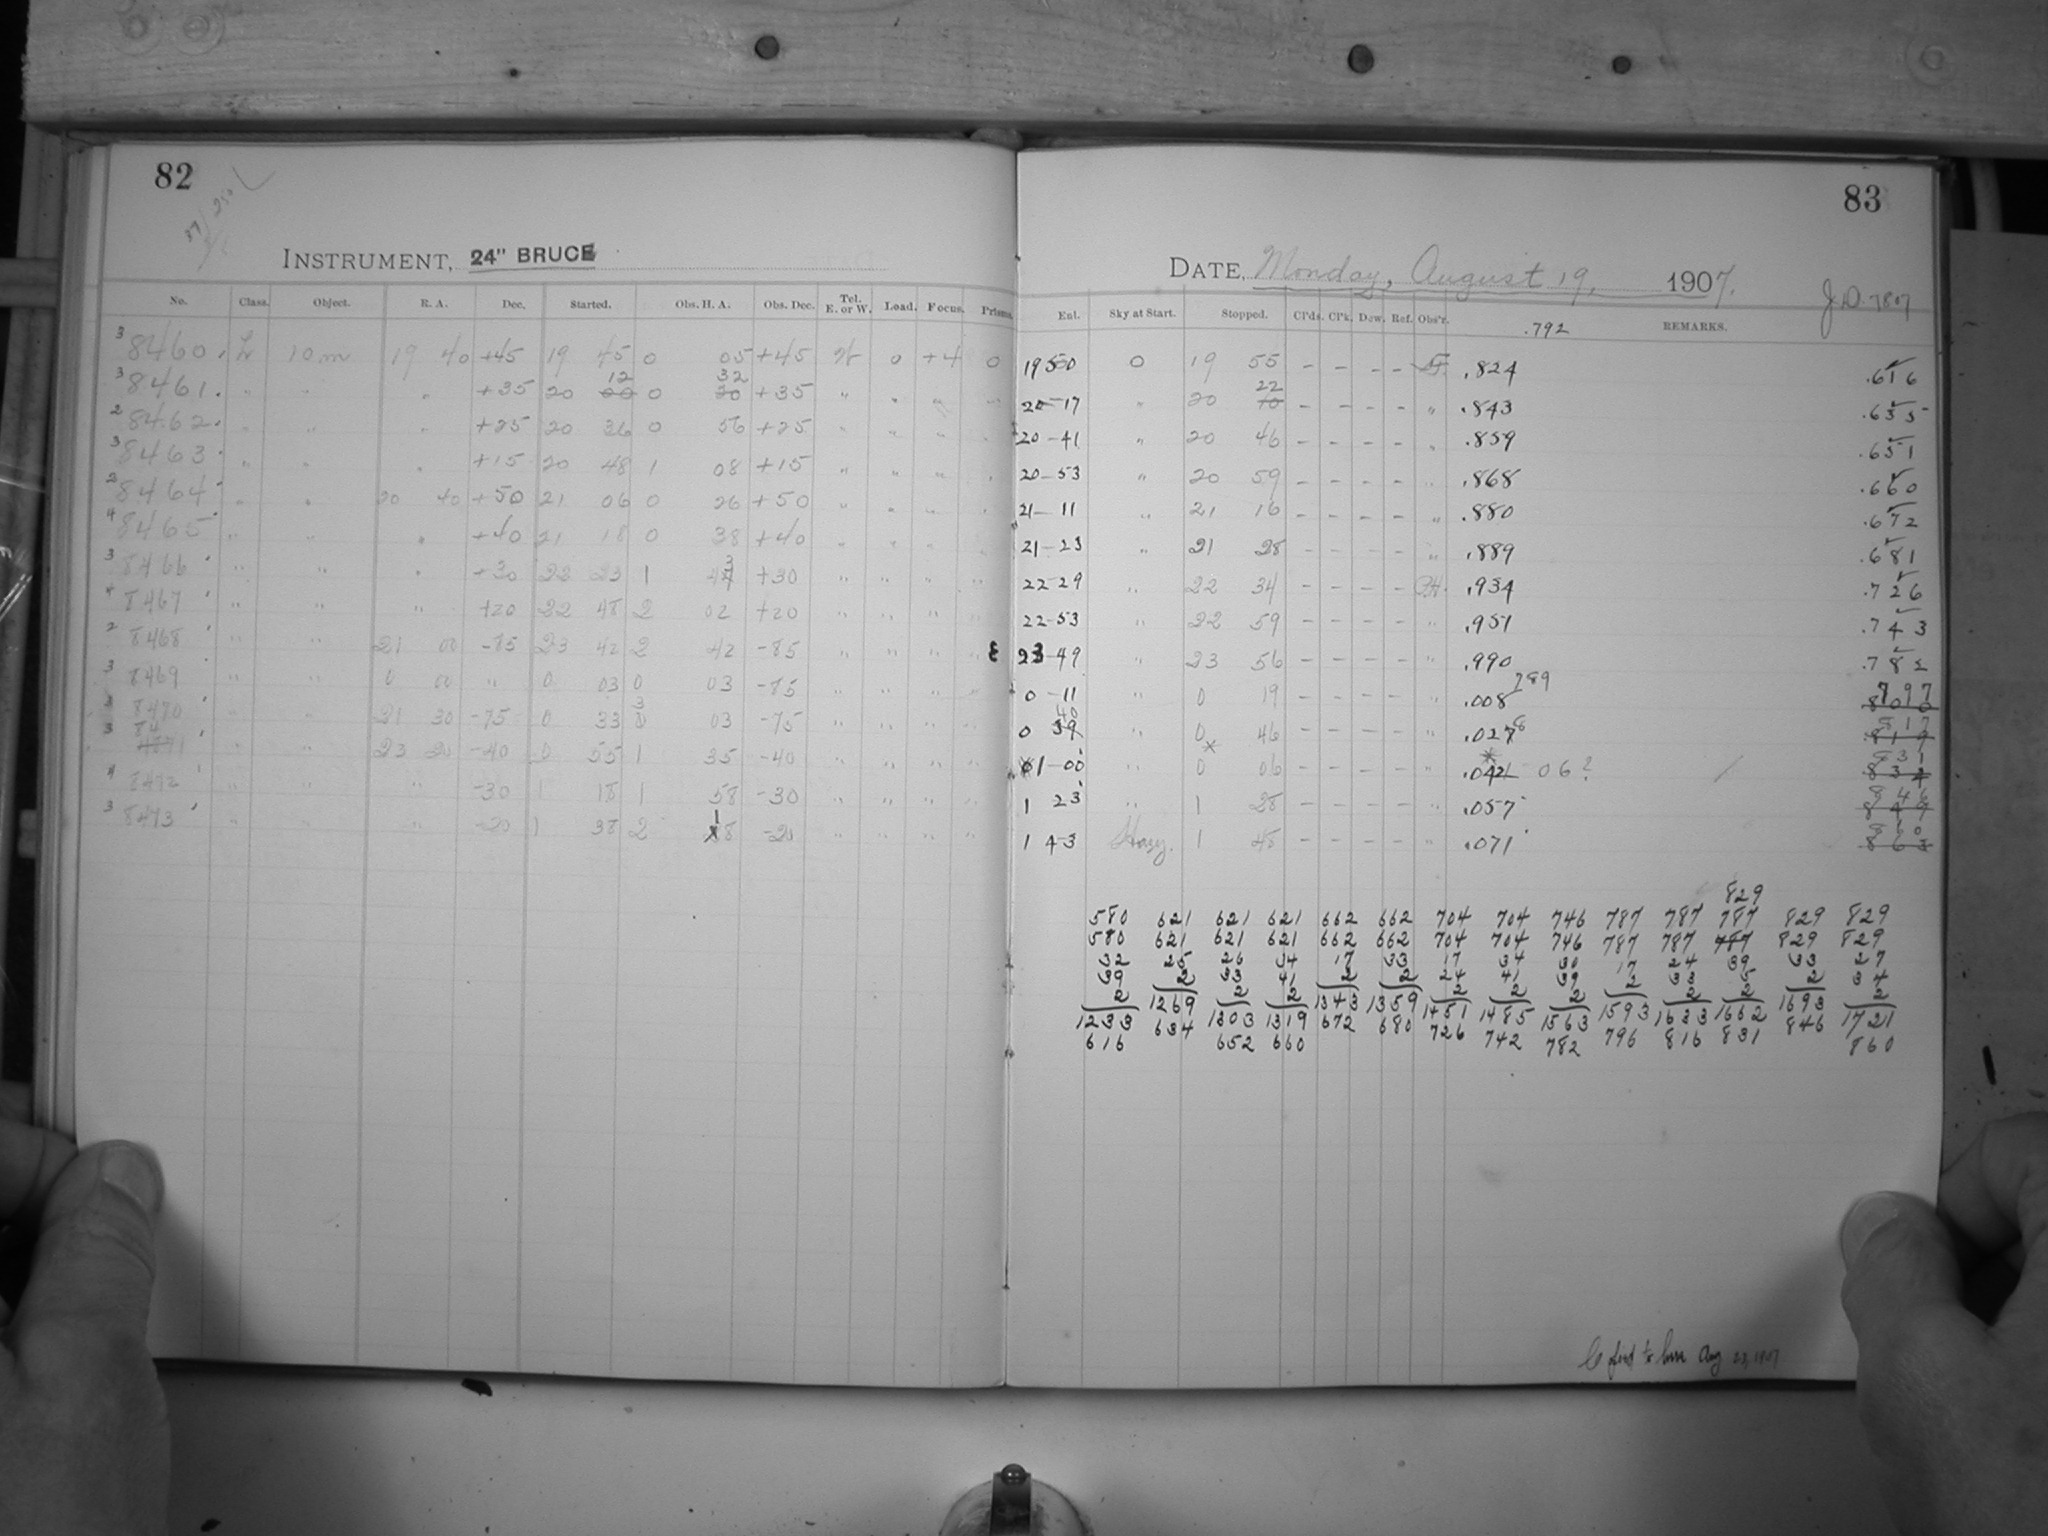 82
INSTRUMENT, 24" BRUCE
No. Class. Object. R. A. Dec. Started. Obs. H. A. Obs. Dec. Tel. E. or W. Load. Focus. Prisms.
3 8460. L 10m 19 40 +45 19 45 0 05 +45 W 0 +4 0
3 8461. " " " +35 20 12 0 32 +35 " " " "
2 8462. " " " +25 20 36 0 56 +25 " " " "
3 8463. " " " +15 20 48 1 08 +15 " " " "
2 8464 " " 20 40 +50 21 06 0 26 +50 " " " "
4 8465 " " " +40 21 18 0 38 +40 " " " "
3 8466 " " " +30 22 23 1 43 +30 " " " "
4 8467 " " " +20 22 48 2 02 +20 " " " "
2 8468 " " 21 00 -85 23 42 2 42 -85 " " " "
3 8469 " " 0 00 " 0 03 0 03 -85 " " " "
3 8470 " " 21 30 -75 0 33 3 03 -75 " " " "
3 8471 " " 23 20 -40 0 55 1 35 -40 " " " "
4 8472 " " " -30 1 18 1 58 -30 " " " "
3 8473 " " " -20 1 38 2 18 -20 " " " "
83
DATE, Monday, August 19, 1907.
J.D. 7807
Ent. Sky at Start. Stopped. Cl'ds. Cl'k. Dew. Ref. Obs'r. .792 REMARKS.
19 50 0 19 55 - - - - .824 .616
20-17 " 20 22 - - - - " .843 .635
20-41 " 20 46 - - - - " .859 .651
20-53 " 20 59 - - - - " .868 .660
21-11 " 21 16 - - - - " .880 .672
21-23 " 21 28 - - - - " .889 .681
22-29 " 22 34 - - - - .934 .726
22-53 " 22 59 - - - - " .951 .743
23-49 " 23 56 - - - - " .990 .782
789
0-11 " 0 19 - - - - " .008 797
0 40 " 0 46 - - - - " .028 817
1-00 " 0 06 - - - - " .042 06? 831
1 23 " 1 28 - - - - " .057 846
1 43 Hazy. 1 48 - - - - " .071 860
829
580 621 621 621 662 662 704 704 746 787 787 787 829 829
580 621 621 621 662 662 704 704 746 787 787 787 829 829
32 25 26 34 17 33 17 34 30 17 24 39 33 27
39 2 33 41 2 2 24 41 39 2 33 5 2 34
2 1269 2 2 1343 1359 2 2 2 1593 2 2 1693 2
1233 634 1303 1319 672 680 1451 1485 1563 796 1633 1662 846 1721
616 652 660 726 742 782 816 831 860
Aug 23, 1907